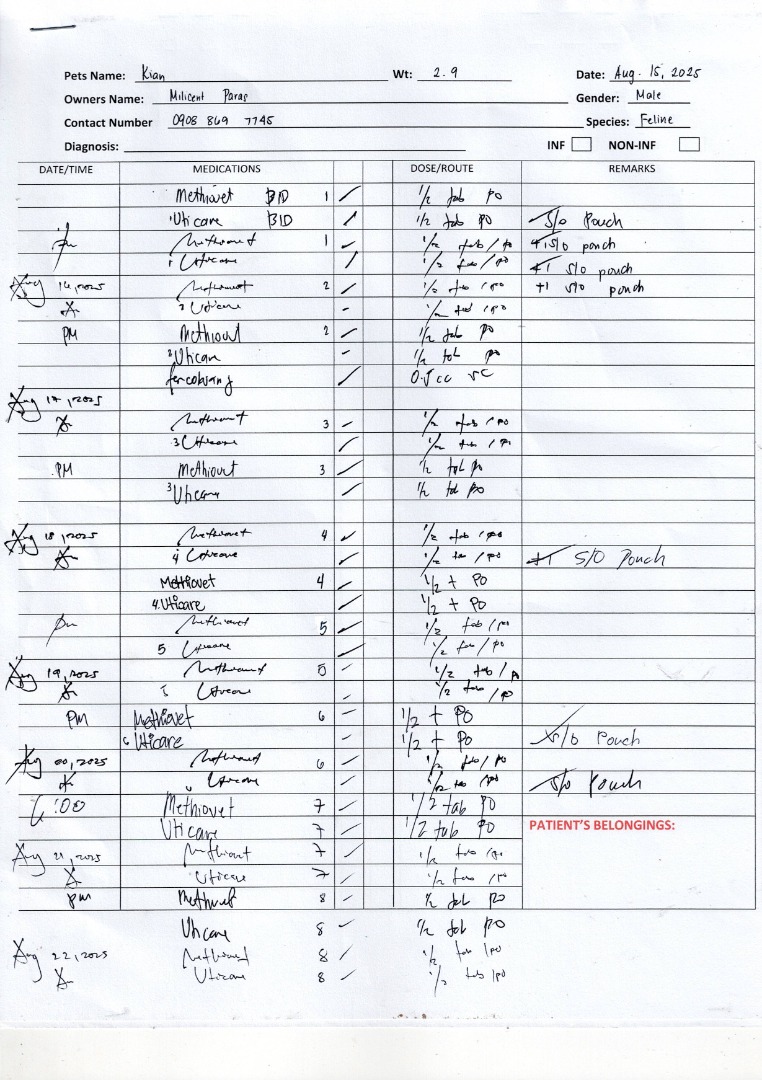 Pets Name: Kian Wt: 2.9 Date: Aug. 15, 2025
Owners Name: Milicent Paras Gender: Male
Contact Number 0908 869 7745 Species: Feline
Diagnosis: INF NON-INF
DATE/TIME MEDICATIONS DOSE/ROUTE REMARKS
Methiovet BID 1 1/2 tab PO
Uticare BID 1/2 tab PO S/O Pouch
Methiovet 1 1/2 tab/po +1 S/O pouch
1 Uticare 1/2 tab/po +1 S/O pouch
Aug 16, 2025 Methiovet 2 1/2 tab/po +1 S/O pouch
2 Uticare 1/2 tab/po
PM Methiovet 2 1/2 tab PO
2 Uticare 1/2 tab PO
0.5 cc SC
Aug 17, 2025
Methiovet 3 1/2 tab/po
3 Uticare 1/2 tab/po
PM Methiovet 3 1/2 tab po
3 Uticare 1/2 tab po
Aug 18, 2025 Methiovet 4 1/2 tab/po
4 Uticare 1/2 tab/po +1 S/O Pouch
Methiovet 4 1/2 t PO
4. Uticare 1/2 t PO
pm Methiovet 5 1/2 tab/po
5 Uticare 1/2 tab/po
Aug 19, 2025 Methiovet 5 1/2 tab/p
5 Uticare 1/2 tab/po
PM Methiovet 6 1/2 t PO
6 Uticare 1/2 t PO S/O Pouch
Aug 20, 2025 Methiovet 6 1/2 tab/po
6 Uticare 1/2 tab/po S/O Pouch
6:00 Methiovet 7 1/2 tab PO
Uticare 7 1/2 tab PO
PATIENT'S BELONGINGS:
Aug 21, 2025 Methiovet 7 1/2 tab/po
Uticare 7 1/2 tab/po
PM Methiovet 8 1/2 tab PO
Uticare 8 1/2 tab PO
Aug 22, 2025 Methiovet 8 1/2 tab/po
Uticare 8 1/2 tab/po